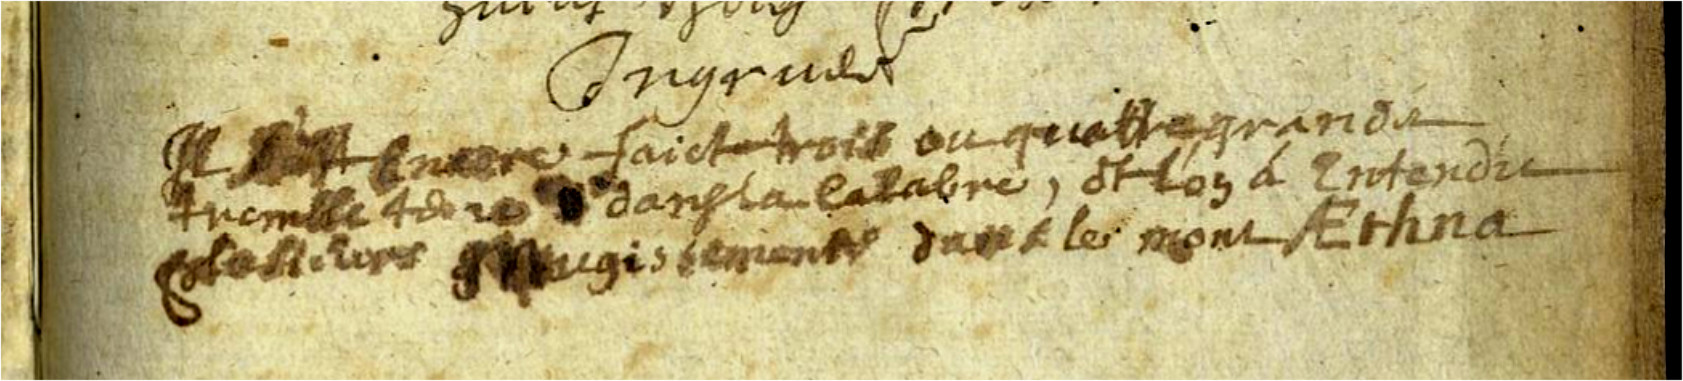 Ingrude
Il s'est Encore faict trois ou quattre grands
tremble terre dans la Calabre, et l'on à Entendu
plusieurs mugissements dans le mont Æthna